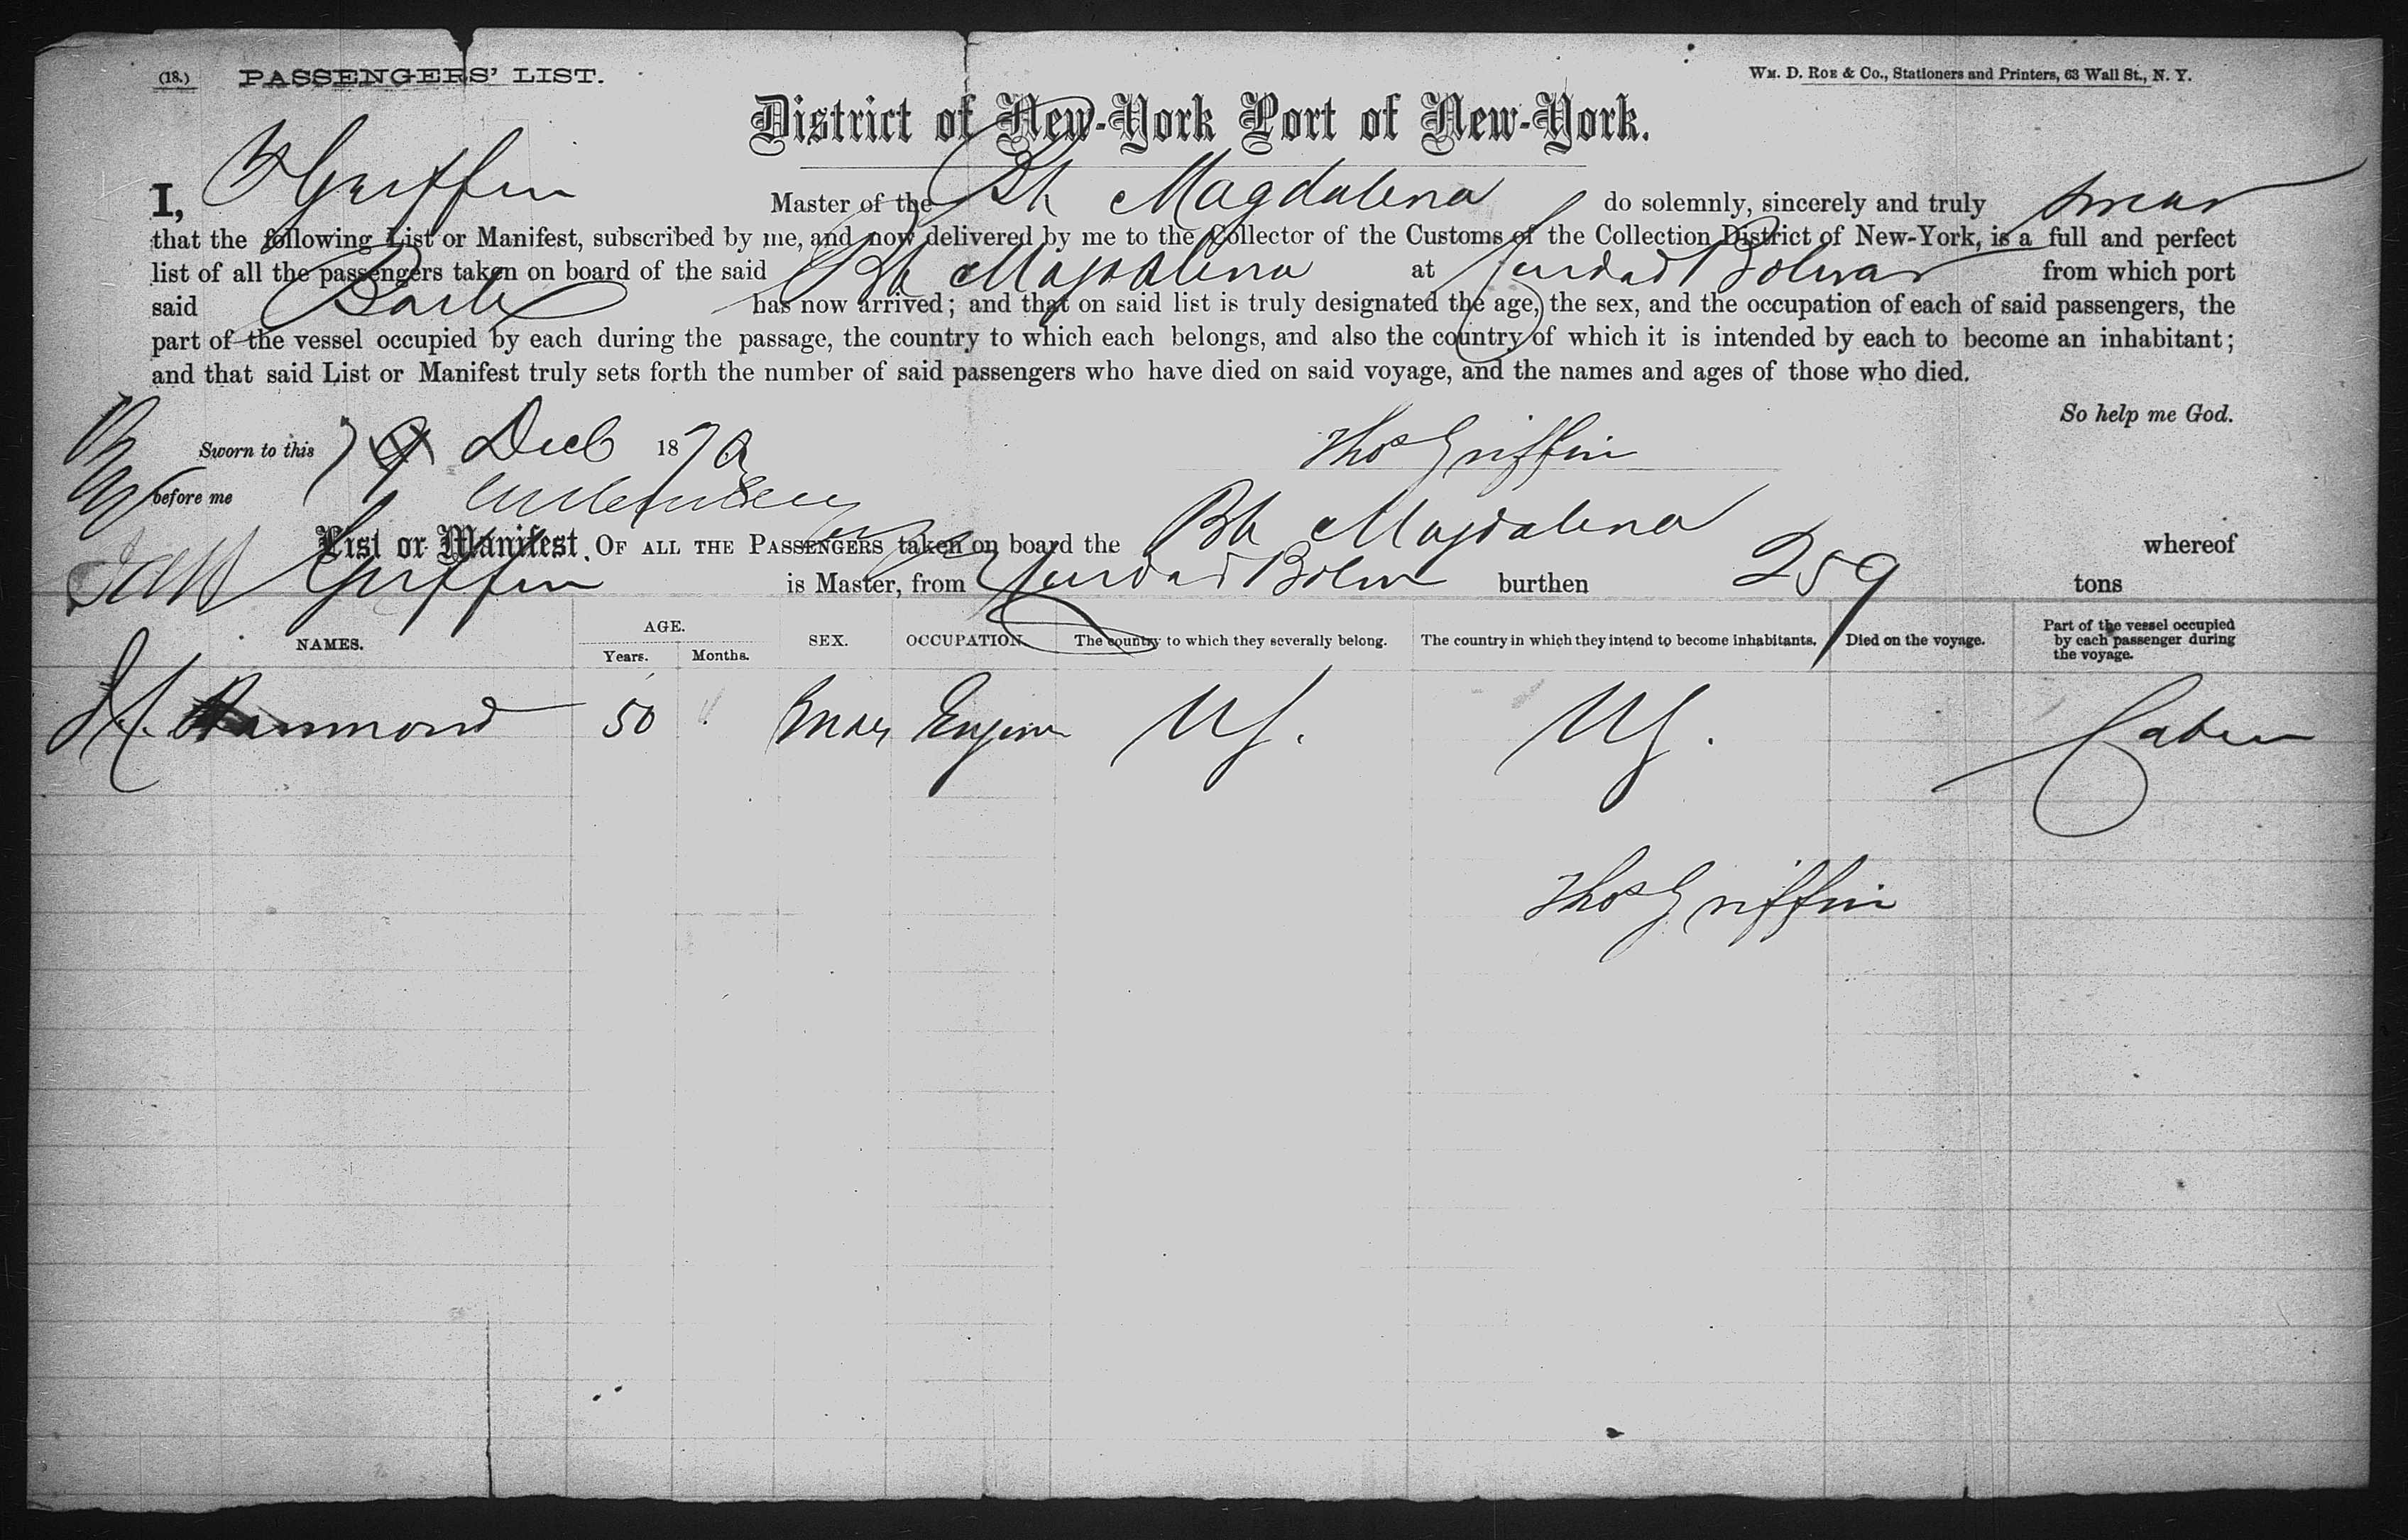 (18.) PASSENGERS' LIST.
WM. D. ROE & Co., Stationers and Printers, 63 Wall St., N. Y.
District of New-York Port of New-York.
I, Griffin Master of the Bk Magdalena do solemnly, sincerely and truly swear
that the following List or Manifest, subscribed by me, and now delivered by me to the Collector of the Customs of the Collection District of New-York, is a full and perfect
list of all the passengers taken on board of the said Bk Magdalena at Ciudad Bolivar from which port
said Bark has now arrived; and that on said list is truly designated the age, the sex, and the occupation of each of said passengers, the
part of the vessel occupied by each during the passage, the country to which each belongs, and also the country of which it is intended by each to become an inhabitant;
and that said List or Manifest truly sets forth the number of said passengers who have died on said voyage, and the names and ages of those who died.
So help me God.
Sworn to this Dec 187 Thos Griffin
before me
List or Manifest. OF ALL THE PASSENGERS taken on board the Bk Magdalena whereof
Griffin is Master, from Ciudad Boliv burthen 259 tons
NAMES. AGE. Years. Months. SEX. OCCUPATION The country to which they severally belong. The country in which they intend to become inhabitants. Died on the voyage. Part of the vessel occupied by each passenger during the voyage.
Hammond 50 Male Engineer US. US. Cabin
Thos Griffin